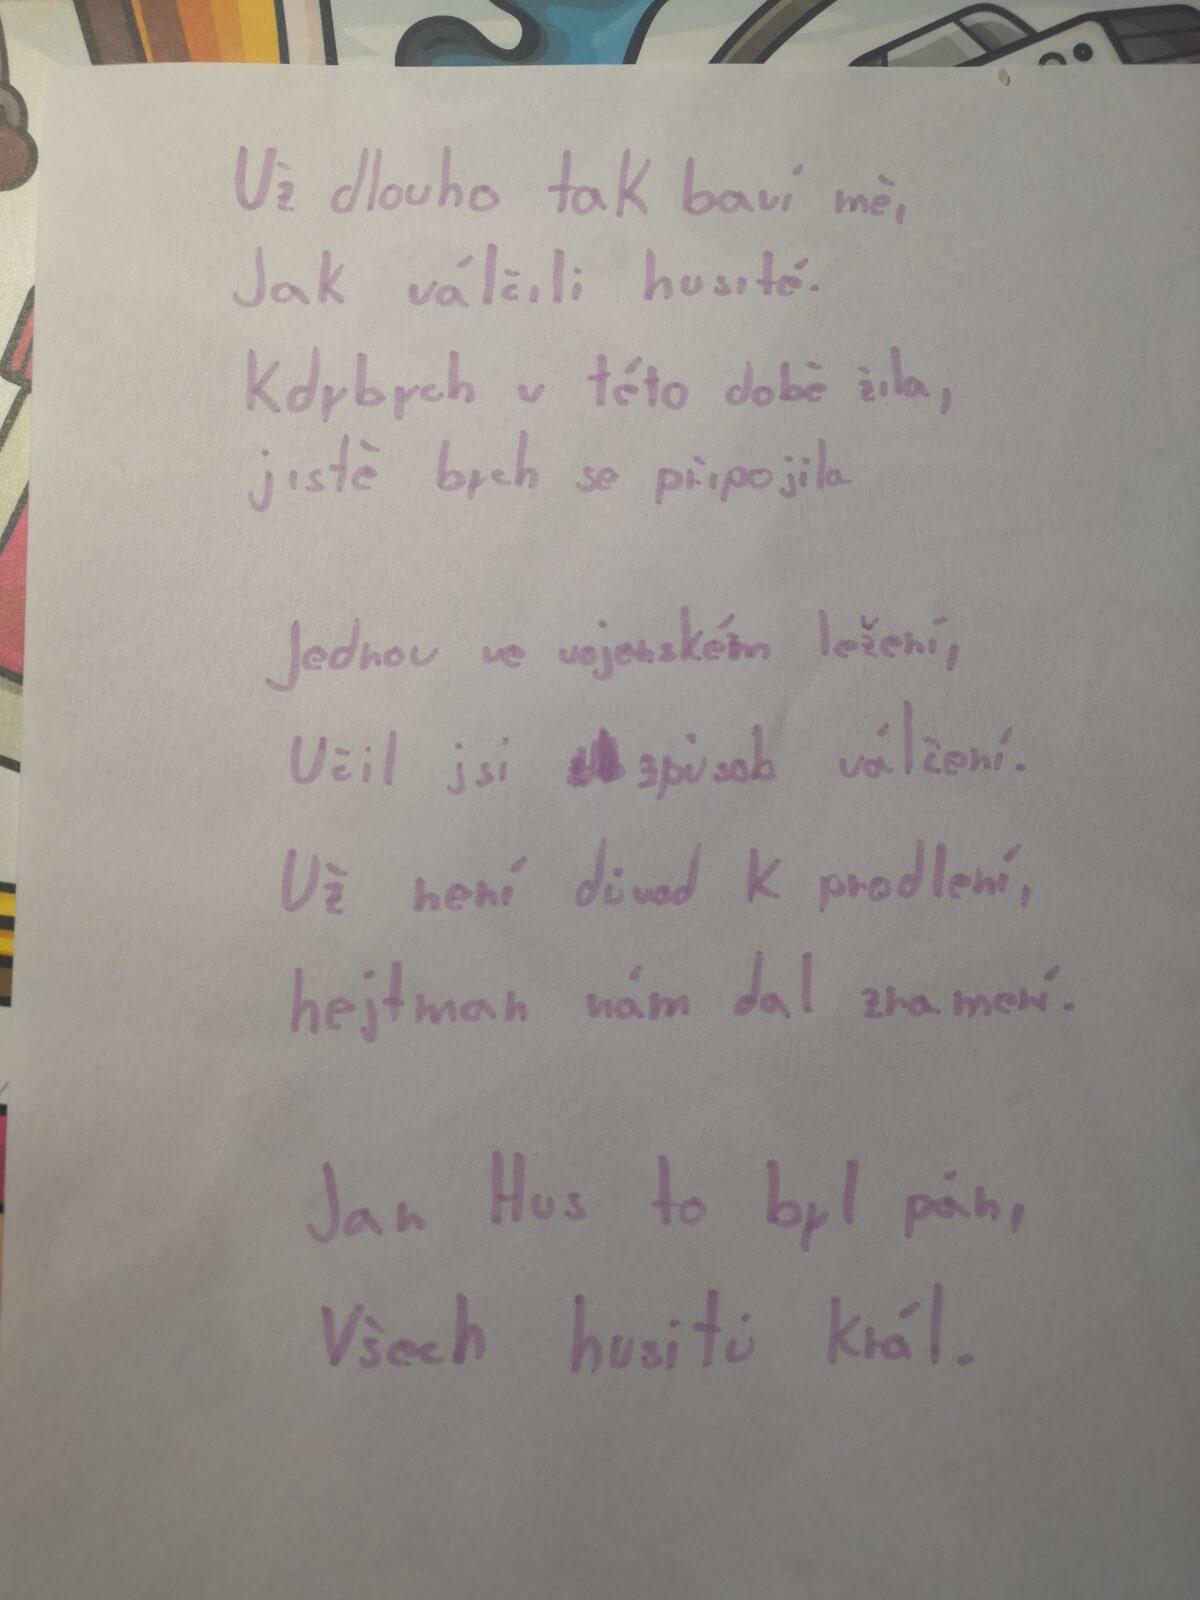 Už dlouho tak baví mě,
Jak válčili husité.
Kdybych v této době žila,
jistě bych se připojila
Jednou ve vojenském ležení,
Učil jsi způsob válčení.
Už není důvod k prodlení,
hejtman nám dal znamení.
Jan Hus to byl pán,
Všech husitů král.